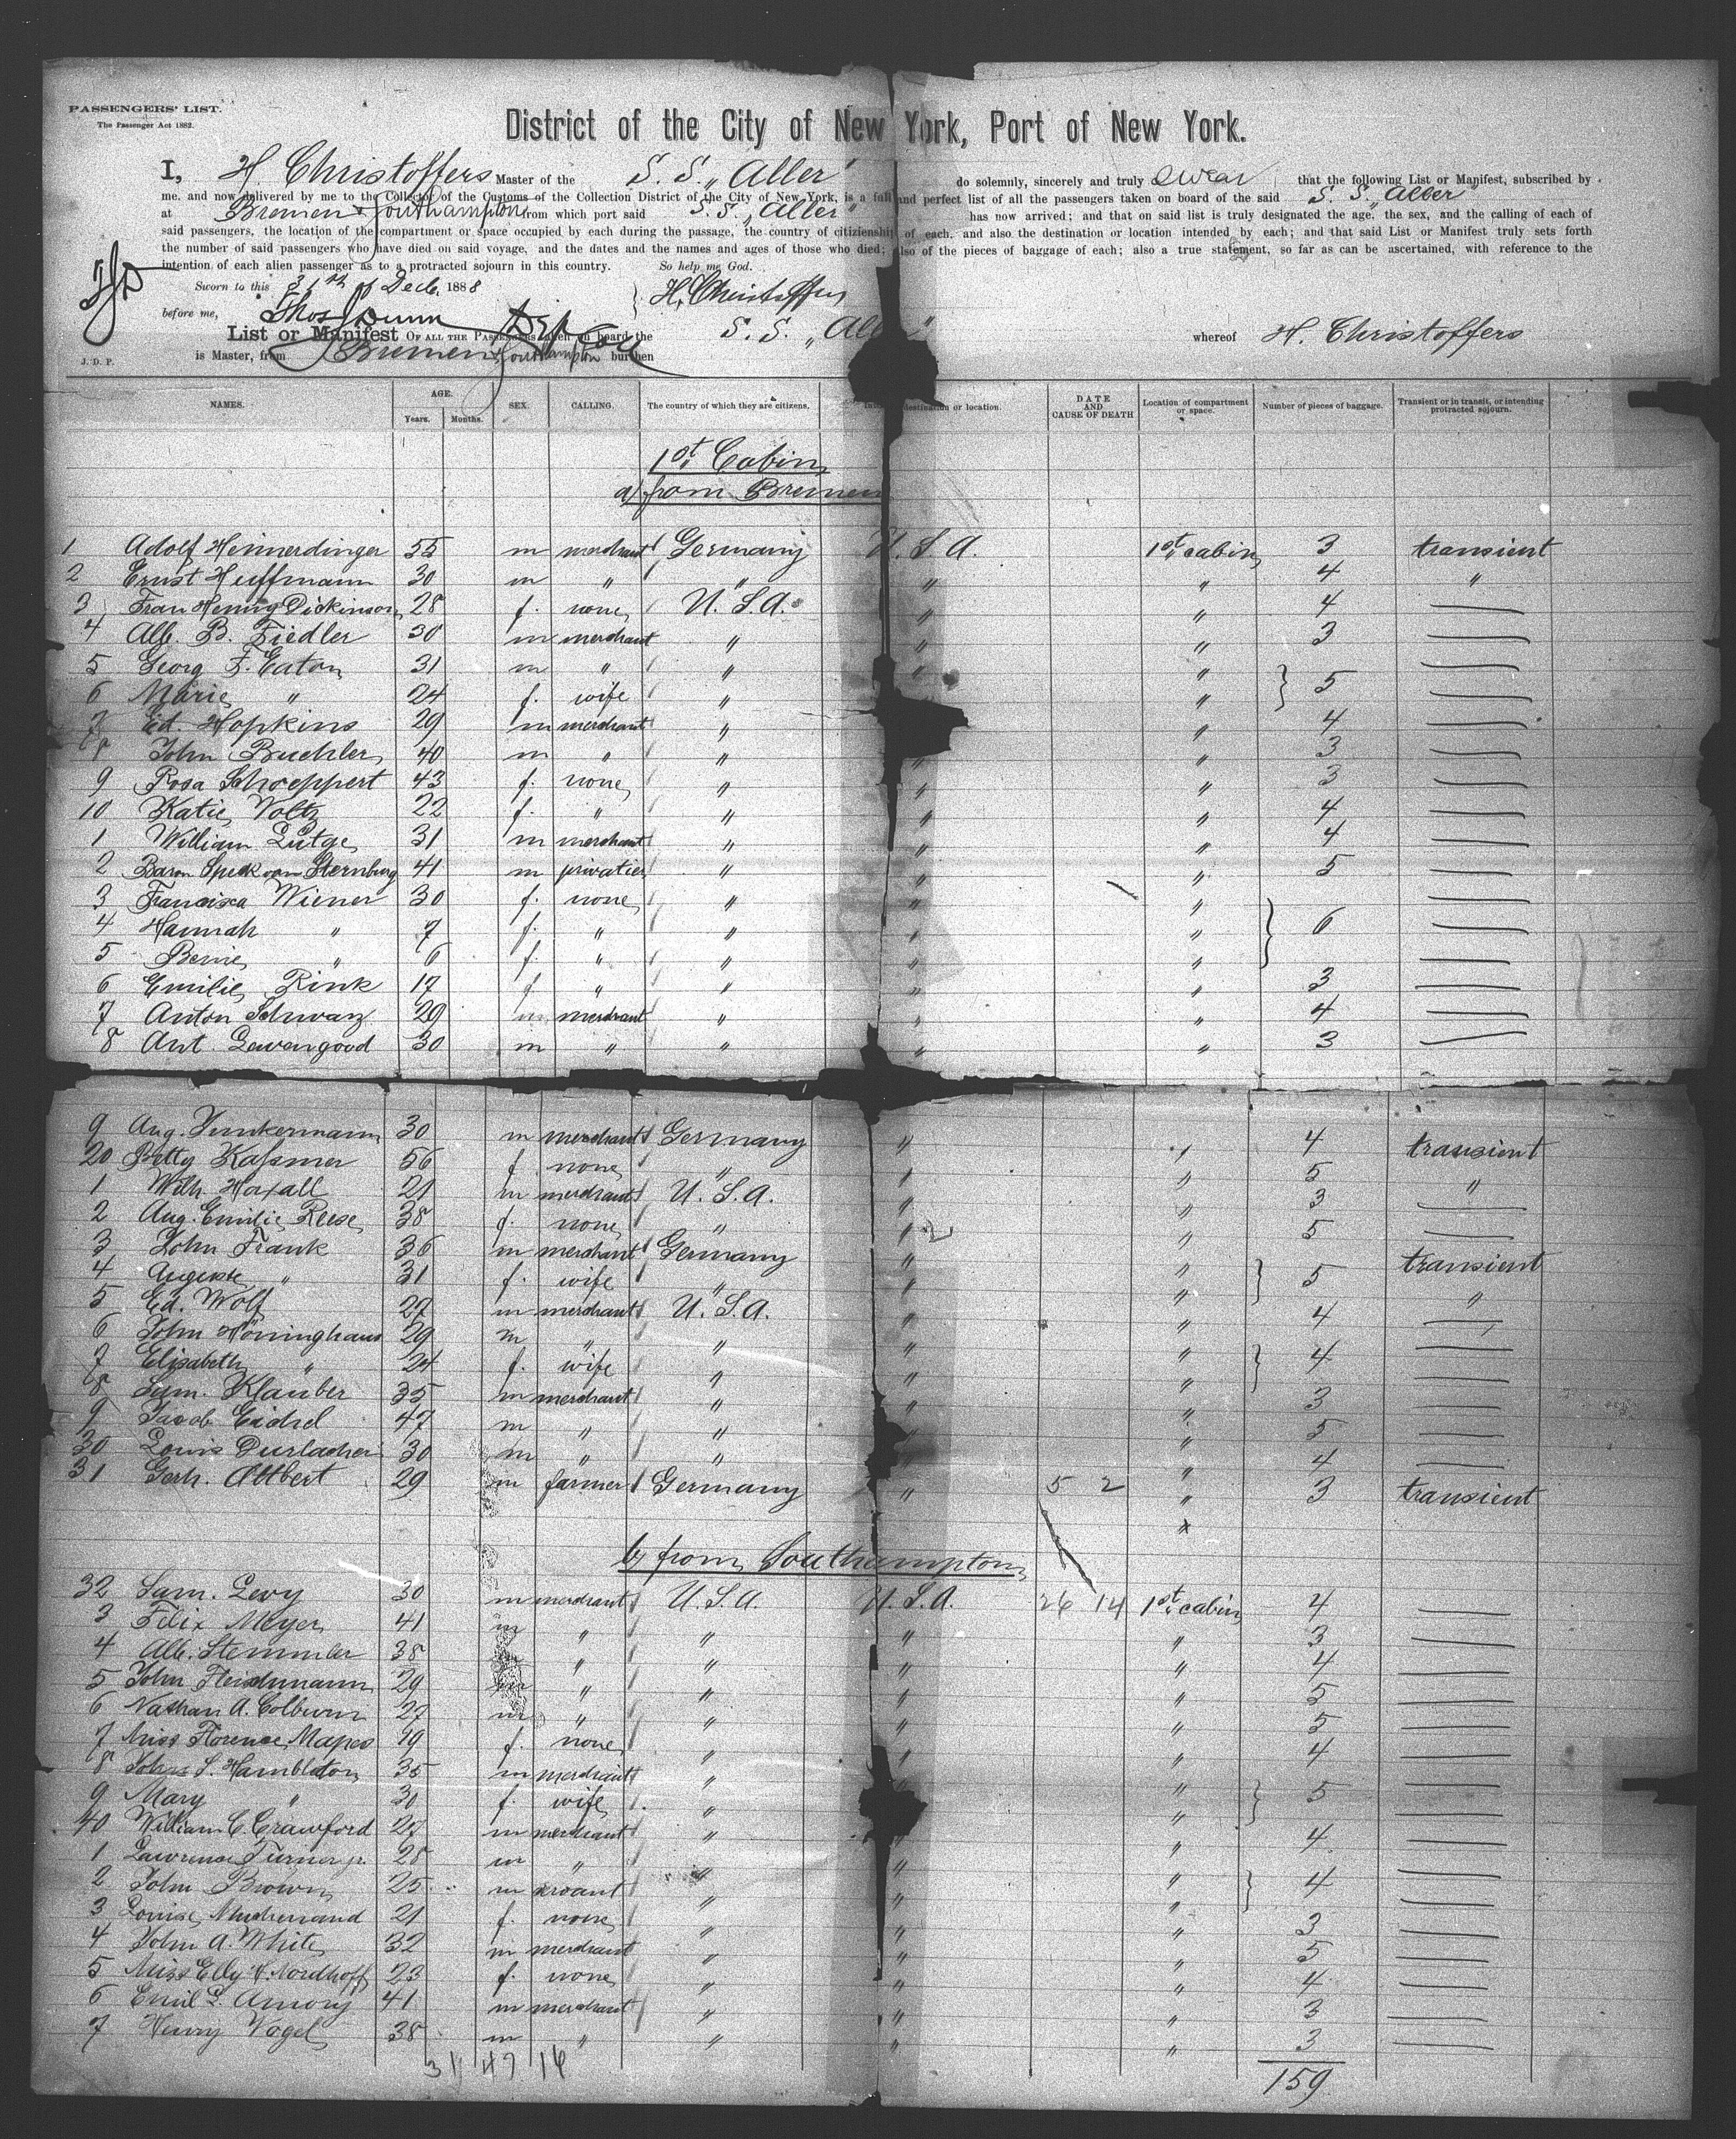 PASSENGERS' LIST.
The Passenger Act 1882.
District of the City of New York, Port of New York.
I, H Christoffers Master of the S. S. „Aller" do solemnly, sincerely and truly swear that the following List or Manifest, subscribed by
me, and now delivered by me to the Collector of the Customs of the Collection District of the City of New York, is a full and perfect list of all the passengers taken on board of the said S. S. „Aller"
at Bremen & Southampton, from which port said S. S. „Aller" has now arrived; and that on said list is truly designated the age, the sex, and the calling of each of
said passengers, the location of the compartment or space occupied by each during the passage, the country of citizenship of each, and also the destination or location intended by each; and that said List or Manifest truly sets forth
the number of said passengers who have died on said voyage, and the dates and the names and ages of those who died; also of the pieces of baggage of each; also a true statement, so far as can be ascertained, with reference to the
intention of each alien passenger as to a protracted sojourn in this country. So help me God.
Sworn to this 31th of Decb. 1888 H. Christoffers
before me, Thos Dunn
List or Manifest OF ALL THE PASSENGERS taken on board the S. S. „Aller" whereof H. Christoffers
J. D. P. is Master, from Bremen & Southampton burthen
NAMES. AGE. Years. Months. SEX. CALLING. The country of which they are citizens. destination or location. DATE AND CAUSE OF DEATH Location of compartment or space. Number of pieces of baggage. Transient or in transit, or intending protracted sojourn.
1st Cabin
a) from Bremen
1 Adolf Heinnerdinger 55 m merchant Germany U. S. A. 1st cabin 3 transient
2 Ernst Huffmann 30 m " " " " 4 "
3 Frau Henny Dickinson 28 f. none U. S. A. " " 4 —
4 Alb. B. Fiedler 30 m merchant " " " 3 —
5 Georg F. Eaton 31 m " " " " } 5 —
6 Marie " 24 f. wife " " " —
7 Ed. Hopkins 29 m merchant " " " 4 —
8 John Buehler 40 m " " " " 3 —
9 Rosa Schoeppert 43 f. none " " " 3 —
10 Katie Voltz 22 f. " " " " 4 —
1 William Lütge 31 m merchant " " " 4 —
2 Baron Speck von Sternburg 41 m privatier " " " 5 —
3 Francisca Wiener 30 f. none " " " } 6 —
4 Hannah " 7 f. " " " " —
5 " 6 f. " " " " —
6 Emilie Rink 17 f. " " " " 3 —
7 Anton Schwarz 29 m merchant " " " 4 —
8 Ant. Lewengood 30 m " " " " 3 —
9 Aug. Junkermann 30 m merchant Germany " " 4 transient
20 Betty Kassmer 56 f. none " " " 5 "
1 Wilh Hoxall 21 m merchant U. S. A. " " 3 —
2 Aug. Emilie Reese 38 f. none " " " 5 —
3 John Frank 36 m merchant Germany " " } 5 transient
4 Auguste " 31 f. wife " " " "
5 Ed. Wolf 27 m merchant U. S. A. " " 4 —
6 John Hönninghaus 29 m " " " " } 4 —
7 Elisabeth " 24 f. wife " " " —
8 Sum. Klauber 35 m merchant " " " 3 —
9 Jacob Eichel 47 m " " " " 5 —
30 Louis Durlacher 30 m " " " " 4 —
31 Gerh. Abbert 29 m farmer Germany " 5 2 " 3 transient
b) from Southampton
32 Sam. Levy 30 m merchant U. S. A. U. S. A. 26 14 1st cabin 4 —
3 Felix Meyer 41 m " " " " 3 —
4 Alb. Stemmler 38 m " " " " 4 —
5 John Fleischmann 29 m " " " " 5 —
6 Nathan A. Colburn 27 m " " " " 5 —
7 Miss Florence Mapes 19 f. none " " " 4 —
8 John S. Hambleton 35 m merchant " " " } 5 —
9 Mary " 30 f. wife " " " —
40 William C. Crawford 27 m merchant " " " 4 —
1 Lawrence Turner jr. 28 m " " " " } 4 —
2 John Brown 25 m servant " " " —
3 Louise 21 f. none " " " 3 —
4 John A. White 32 m merchant " " " 5 —
5 Miss Elly V. Nordhoff 23 f. none " " " 4 —
6 Emil L. Amory 41 m merchant " " " 3 —
7 Henry Vogel 38 m " " " " 3 —
31 47 16 159